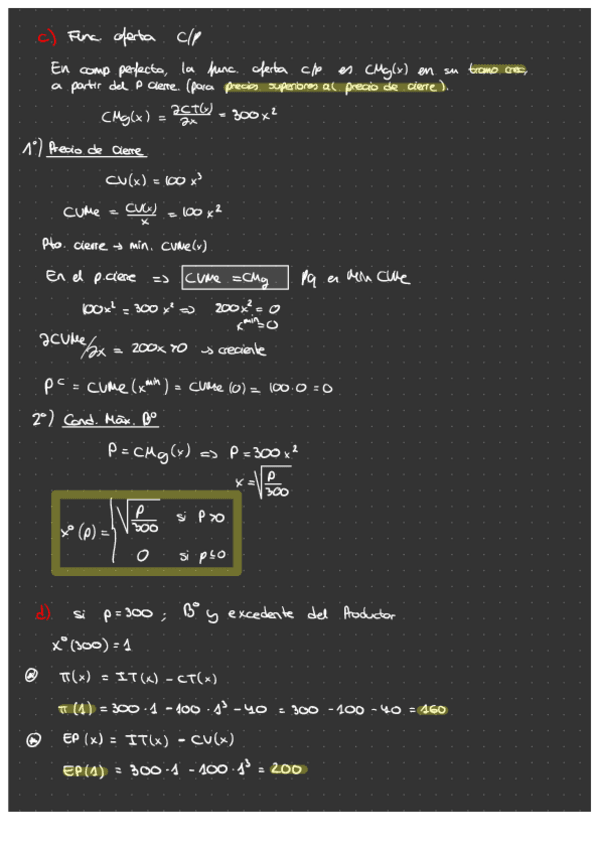 c.) Func oferta c/p
En comp perfecta, la func. oferta c/p es CMg(x) en su tramo crec,
a partir del P cierre. (para precios superiores al precio de cierre).
CMg(x) = ∂CT(x)/∂x = 300x²
1º) Precio de cierre
CV(x) = 100x³
CVMe = CV(x)/x = 100x²
Pto. cierre → min. CVMe(x)
En el p.cierre => CVMe = CMg Pq es Min CVMe
100x² = 300x² => 200x² = 0
x^min = 0
∂CVMe/∂x = 200x>0 → creciente
P^c = CVMe(x^min) = CVMe(0) = 100·0 = 0
2º) Cond. Máx. Bº
P = CMg(x) => P = 300x²
x = √(P/300)
xº(p) = { √(P/300) si P>0
0 si p≤0
d) si p=300 ; Bº y excedente del Productor
xº(300) = 1
π(x) = IT(x) - CT(x)
π(1) = 300·1 - 100·1³ - 40 = 300 - 100 - 40 = 160
EP(x) = IT(x) - CV(x)
EP(1) = 300·1 - 100·1³ = 200